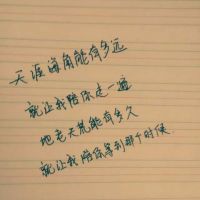 天涯海角能有多远
就让我陪你走一遍
地老天荒能有多久
就让我陪你等到那个时候